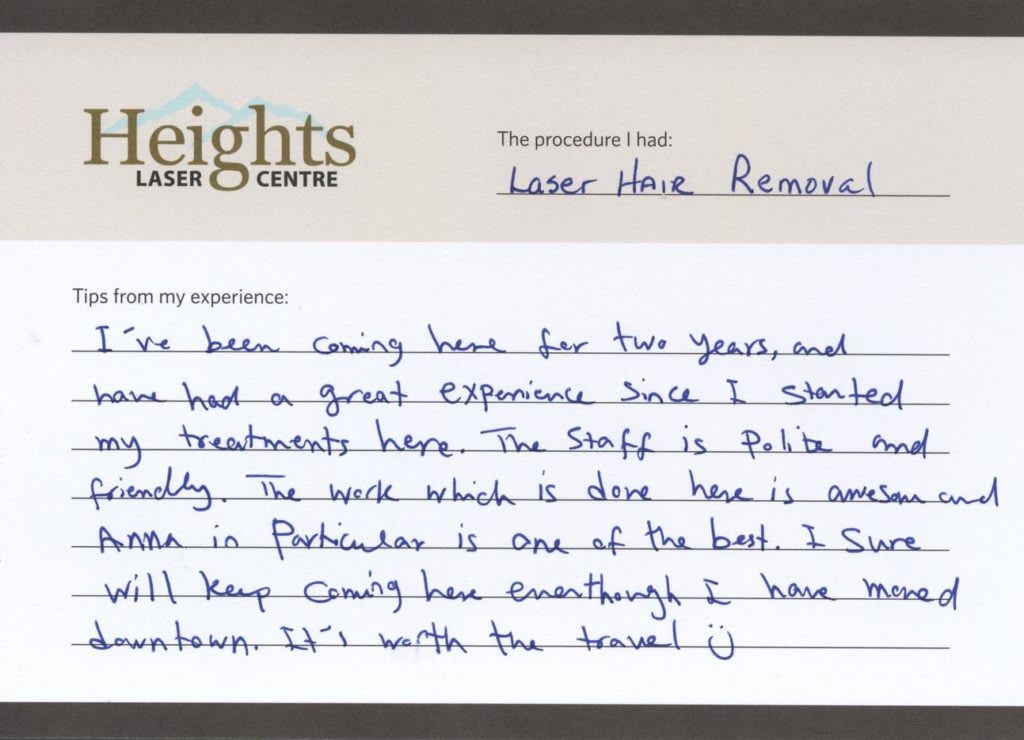 Heights
LASER CENTRE
The procedure I had:
Laser HAIR Removal
Tips from my experience:
I've been coming here for two years, and
have had a great experience since I started
my treatments here. The staff is Polite and
friendly. The work which is done here is awesom and
ANNA in Particular is one of the best. I Sure
will keep coming here eventhough I have moved
downtown. It's worth the travel :)